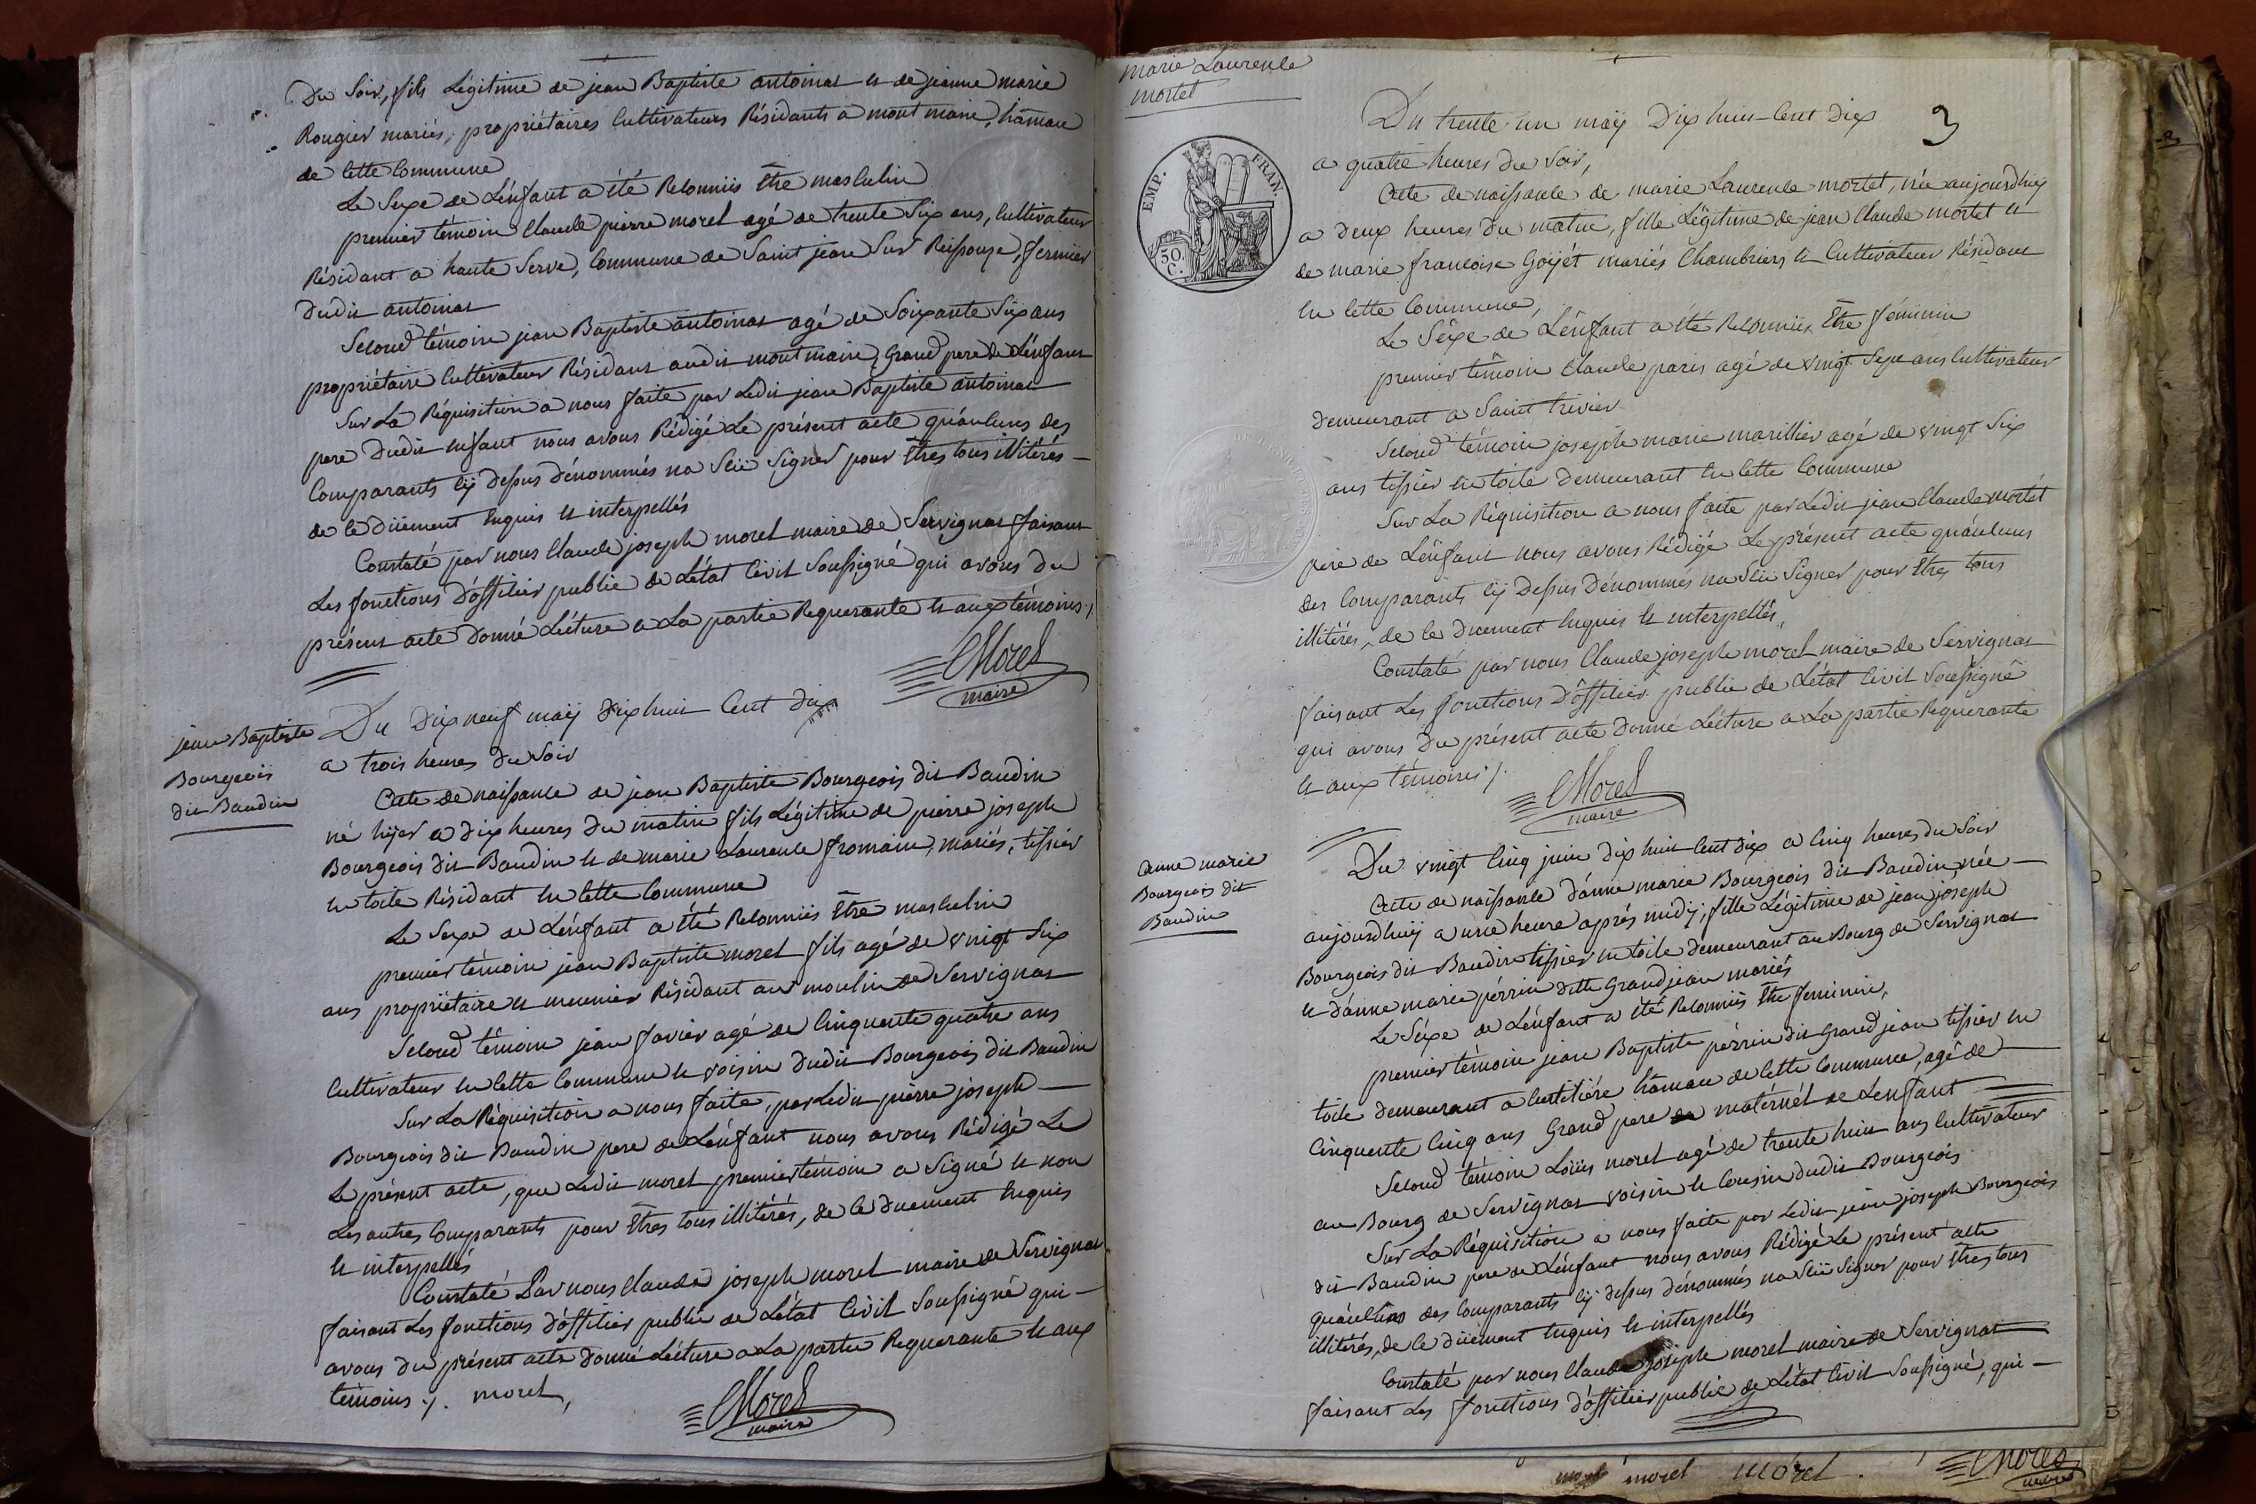 Du Soir, fils Légitime de jean Baptiste antoinat et de jeanne marie
Rougier mariés, propriétaires Cultivateurs Résidants a mont main, hamau
de Cette Commune
Le Sexe de L'énfant a été Reconniis être masculin
premier témoin Claude pierre morel agé de trente Six ans, Cultivateur
Résidant a haute Serve, Commune de Saint jean Sur Reissouze, fermier
dudit antoinat
Second témoin jean Baptiste antoinat agé de Soixante Six ans
propriétaire Cultivateur Résidant audit mont main, Grand pere de L'énfant
Sur La Réquisition a nous faite par Ledit jean Baptiste antoinat
pere dudit enfant nous avons Rédigé Le présent acte qu'auluns des
Comparants Cÿ dessus dénommés na Seü Signer pour être tous illitérés
de Ce düement Enquis et interpellés
Constaté par nous Claude joseph morel maire de Servignat faisant
Les fonctions d'officier public de L'état Civil Soussigné qui avons du
présent acte donné Lécture a La partie Requerante et aux témoins ./.
CMorel
maire
jean Baptiste
Bourgeois
dit Baudin
Du Dix neuf maÿ dix huit Cent dix
a trois heures du Soir
Acte de naissance de jean Baptiste Bourgeois dit Baudin
né hÿer a dix heures du matin fils Légitime de pierre joseph
Bourgeois dit Baudin et de marie Laurence fromain, mariés, tissier
en toile Résidant en Cette Commune
Le Sexe de L'énfant a été Reconniis être masculin
premier témoin jean Baptiste morel fils agé de vingt Six
ans propriétaire et meunier Résidant au moulin de Servignat
Second témoin jean favier agé de Cinquente quatre ans
Cultivateur en Cette Commune et voisin dudit Bourgeois dit Baudin
Sur La Réquisition a nous faite, par Ledit pierre joseph
Bourgeois dit Baudin pere de L'énfant nous avons Rédigé Le
Le présent acte, que Ledit morel premier témoin a Signé et non
Les autres Comparants pour êtres tous illitérés, de Ce duement Enquis
et interpellés
Constaté Par nous Claude joseph morel maire de Servignat
faisant Les fonctions d'officier public de L'état Civil Soussigné qui
avons du présent acte donné Lécture a La partie Requerante et aux
témoins ./. morel,
CMorel
maire
marie Laurence
mortet
EMP. FRAN.
50. C.
3
Du trente un maÿ Dix huit Cent dix
a quatre heures du Soir,
Acte de naissance de marie Laurence mortet, née aujourdhuy
a deux heures du matin, fille Légitime de jean Claude mortet et
de marie francoise Goÿét mariés Chambriers et Cultivateur Résidant
en Cette Commune,
Le Séxe de L'énfant a été Reconniis Etre féminin
premier témoin Claude paris agé de vingt Sept ans Cultivateur
demeurant a Saint trivier
Second témoin joseph marie marillier agé de vingt Six
ans tissier en toile demeurant en Cette Commune
Sur La Réquisition a nous faite par Ledit jean Claude mortét
pere de L'énfant nous avons Rédigé Le présent acte qu'auluns
des Comparants Cÿ dessus dénommés na Seü Signer pour êtres tous
illitérés, de Ce duement Enquis et interpellés,
Constaté par nous Claude joseph morel maire de Servignat
faisant Les fonctions D'officier public de L'état Civil Soussigné
qui avons du présent acte donné Lécture a La partie Requerante
et aux témoins ./.
CMorel
maire
anne marie
Bourgeois dit
Baudin
Du vingt Cinq juin dix huit Cent dix a Cinq heures du Soir
Acte de naissance d'anne marie Bourgeois dit Baudin née
aujourdhuÿ a une heure aprés midÿ, fille Légitime de jean joseph
Bourgeois dit Baudin tissier en toile demeurant au Bourg de Servignat
et d'anne marie pérrin ditte Grandjean mariés
Le Séxe de L'énfant a été Reconniis être féminin,
premier témoin jean Baptiste pérrin dit Grand jean tissier en
toile demeurant a hamau de Cette Commune, agé de
Cinquente Cinq ans Grand pere matérnél de L'énfant
Second témoin Loüis morel agé de trente huit ans Cultivateur
au Bourg de Servignat voisin et Cousin dudit Bourgeois
Sur La Réquisition a nous faite par Ledit jean joseph Bourgeois
dit Baudin pere de L'énfant nous avons Rédigé Le présent acte
qu'auluns des Comparants Cÿ dessus dénommés na Seü Signer pour êtres tous
illitérés, de Ce düement Enquis et interpellés
Constaté par nous Claude joseph morel maire de Servignat
faisant Les fonctions d'officier public de L'état Civil Soussigné, qui
morel morel
CMorel
maire